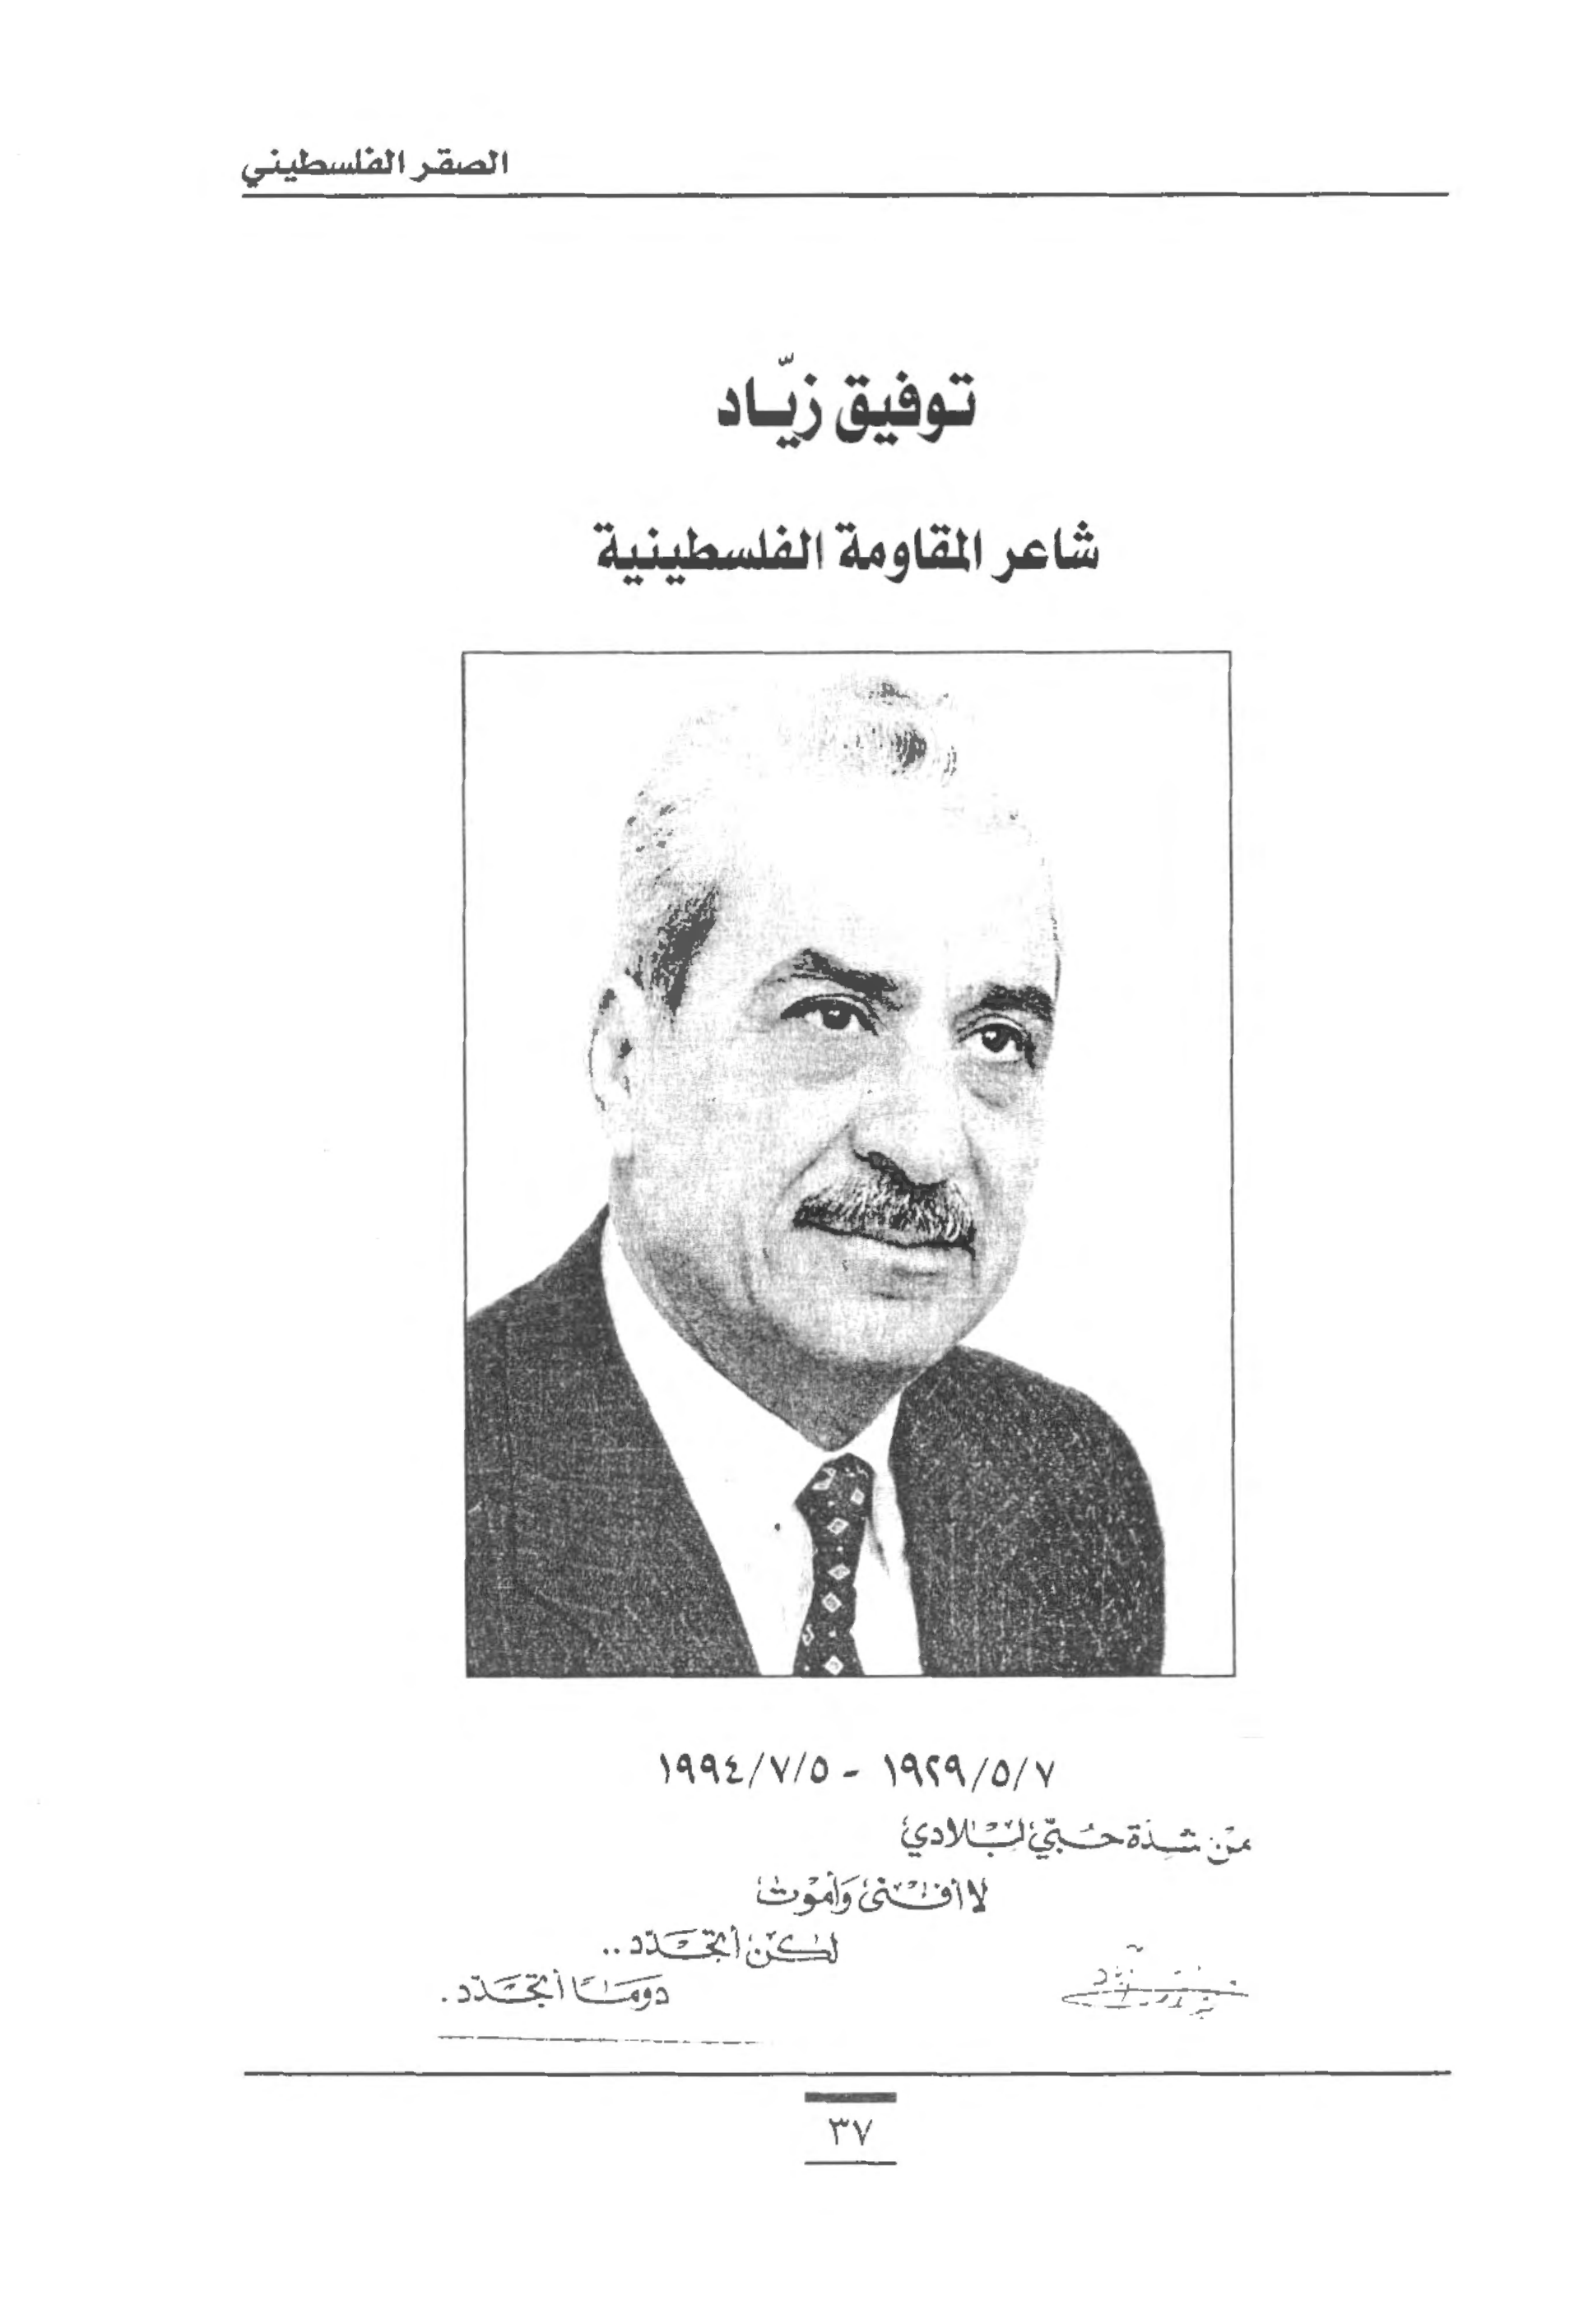 الصقر الفلسطيني
توفيق زيّاد
شاعر المقاومة الفلسطينية
١٩٢٩/٥/٧ - ١٩٩٤/٧/٥
من شدّة حبّي لبلادي
لا أفنى وأموت
لكن أتجدّد ..
دوما أتجدّد .
٣٧